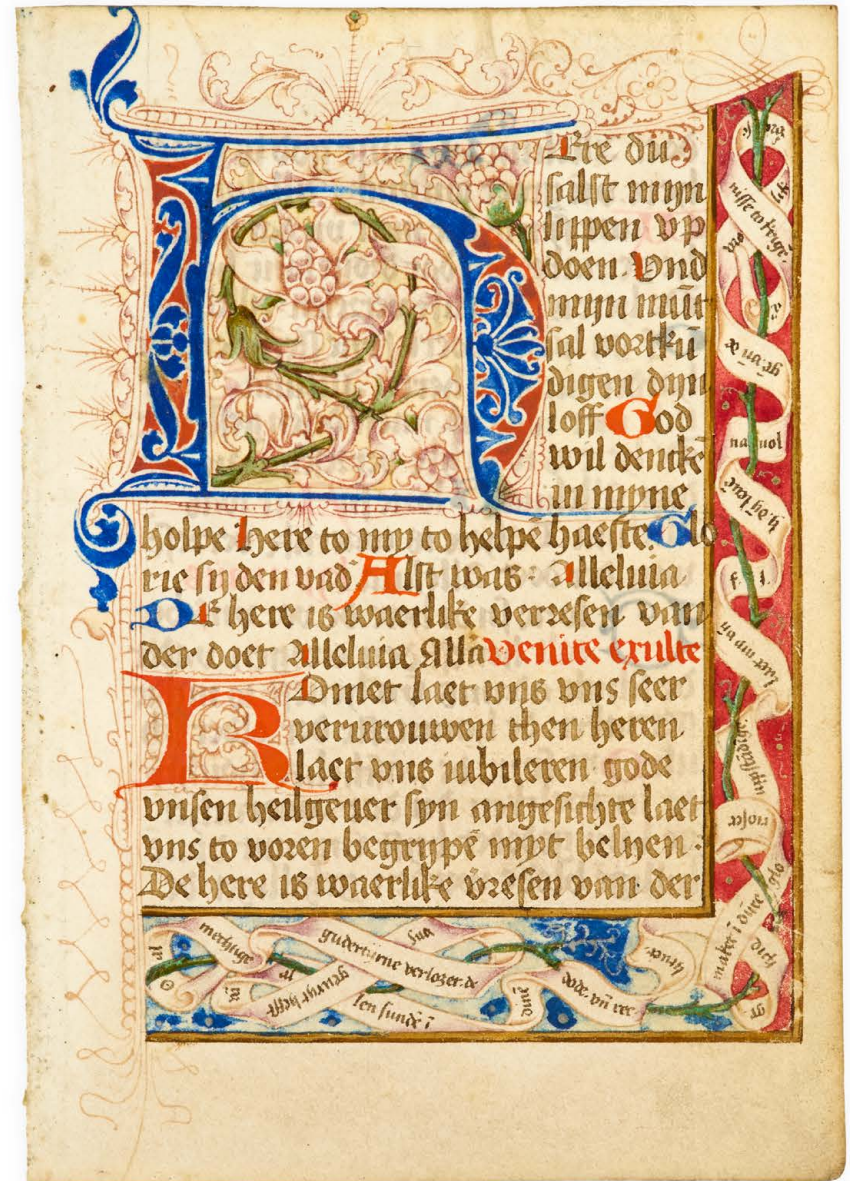 HEre du
salst mijn
lippen vp
doen Vnd
mijn mūt
sal vortkū
digen dijn
loff God
wil denckē
in myne
holpe here to my to helpē haeste Glo
rie sy den vad Alst was Alleluia
De here is waerlike verresen van
der doet Alleluia Alla Venite exulte
KOmet laet vns vns seer
vervrouwen then heren
laet vns iubileren gode
vnsen heilgever syn angesichte laet
vns to voren begrijpē myt belyen
De here is waerlike v̄resen van der
nisse to krige
na vol
guderturne verlozer de
mechtige
gewyst hefft
len sundē ī
dode vn̄ ver
maker ī dyne
glo